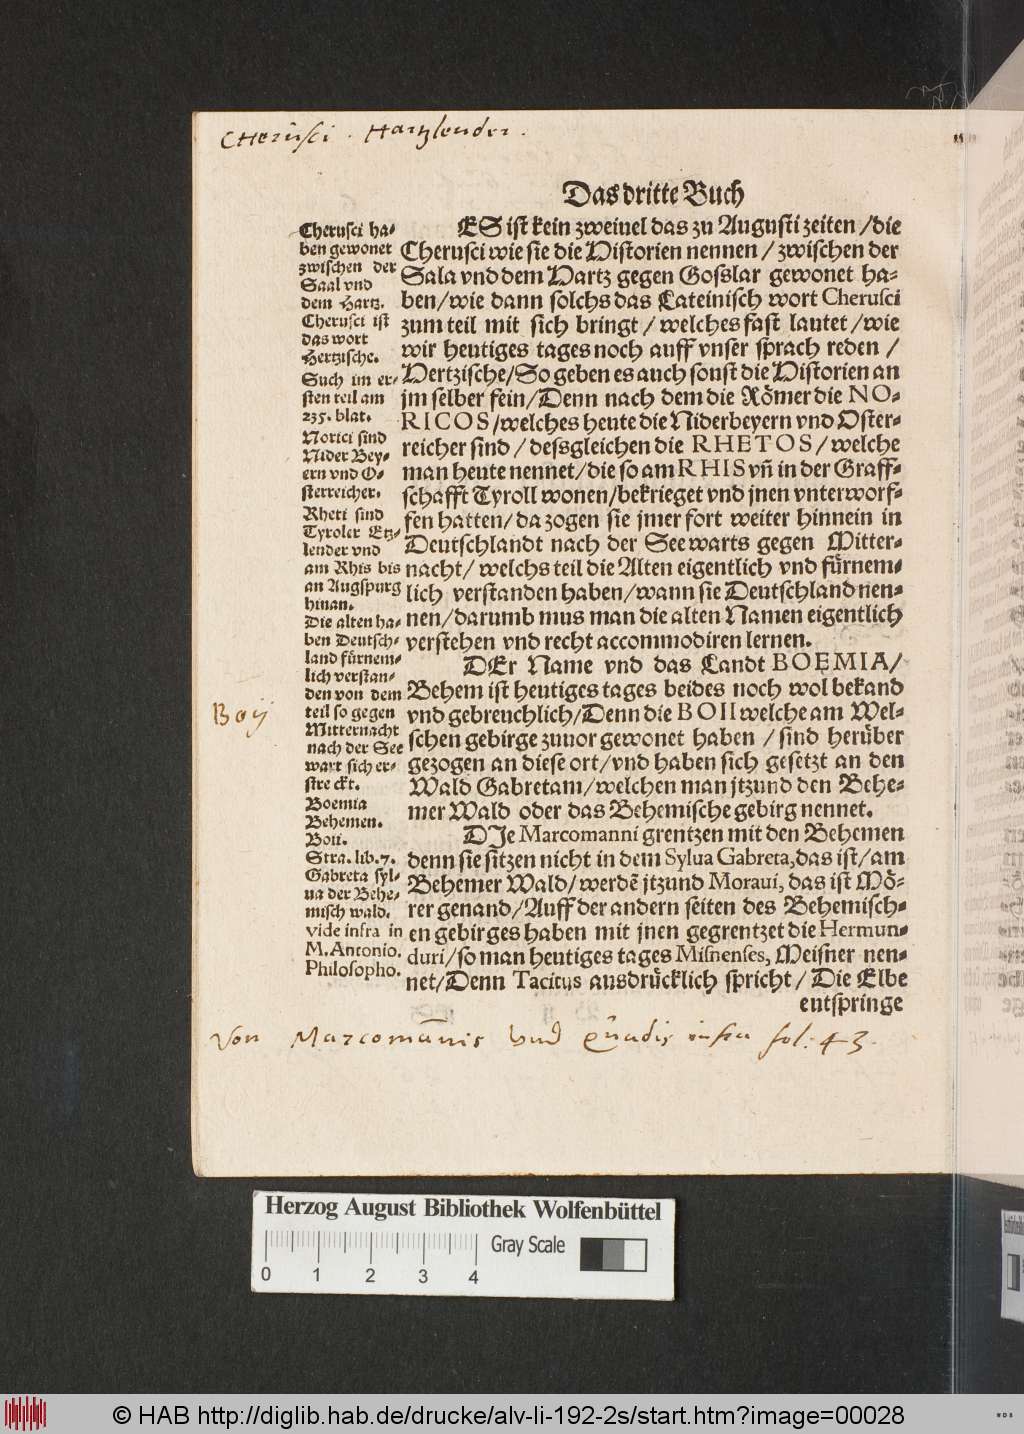 Cherusci . Hartzlender .
Das dritte Buch
Cherusci ha-
ben gewonet
zwischen der
Saal vnd
dem Hartz.
Cherusci ist
das wort
Hertzische.
Such im er-
sten teil am
235. blat.
Norici sind
Nider Bey-
ern vnd O-
sterreicher.
Rheti sind
Tyroler Etz-
lender vnd
am Rhis bis
an Augspurg
hinan.
Die alten ha-
ben Deutsch-
land fürnem-
lich verstan-
den von dem
teil so gegen
Mitternacht
nach der See
wart sich er-
stre ckt.
Boemia
Behemen.
Boii.
Stra. lib. 7.
Gabreta syl-
ua der Behe-
misch wald.
vide infra in
M. Antonio.
Philosopho.
Boij
ES ist kein zweiuel das zu Augusti zeiten / die
Cherusci wie sie die Historien nennen / zwischen der
Sala vnd dem Hartz gegen Gosslar gewonet ha-
ben / wie dann solchs das Lateinisch wort Cherusci
zum teil mit sich bringt / welches fast lautet / wie
wir heutiges tages noch auff vnser sprach reden /
Hertzische / So geben es auch sonst die Historien an
jm selber fein / Denn nach dem die Römer die NO-
RICOS / welches heute die Niderbeyern vnd Oster-
reicher sind / dessgleichen die RHETOS / welche
man heute nennet / die so am RHIS vñ in der Graff-
schafft Tyroll wonen / bekrieget vnd jnen vnterworf-
fen hatten / da zogen sie jmer fort weiter hinnein in
Deutschlandt nach der See warts gegen Mitter-
nacht / welchs teil die Alten eigentlich vnd fürnem-
lich verstanden haben / wann sie Deutschland nen-
nen / darumb mus man die alten Namen eigentlich
verstehen vnd recht accommodiren lernen.
DEr Name vnd das Landt BOEMIA /
Behem ist heutiges tages beides noch wol bekand
vnd gebreuchlich / Denn die BOII welche am Wel-
schen gebirge zuuor gewonet haben / sind herüber
gezogen an diese ort / vnd haben sich gesetzt an den
Wald Gabretam / welchen man jtzund den Behe-
mer Wald oder das Behemische gebirg nennet.
DIe Marcomanni grentzen mit den Behemen
denn sie sitzen nicht in dem Sylua Gabreta, das ist / am
Behemer Wald / werdē jtzund Moraui, das ist Mö-
rer genand / Auff der andern seiten des Behemisch-
en gebirges haben mit jnen gegrentzet die Hermun-
duri / so man heutiges tages Misnenses, Meisner nen-
net / Denn Tacitus ausdrücklich spricht / Die Elbe
entspringe
Von Marcomanis vnd Quadis infra fol: 43.
Herzog August Bibliothek Wolfenbüttel
Gray Scale
0 1 2 3 4
© HAB http://diglib.hab.de/drucke/alv-li-192-2s/start.htm?image=00028